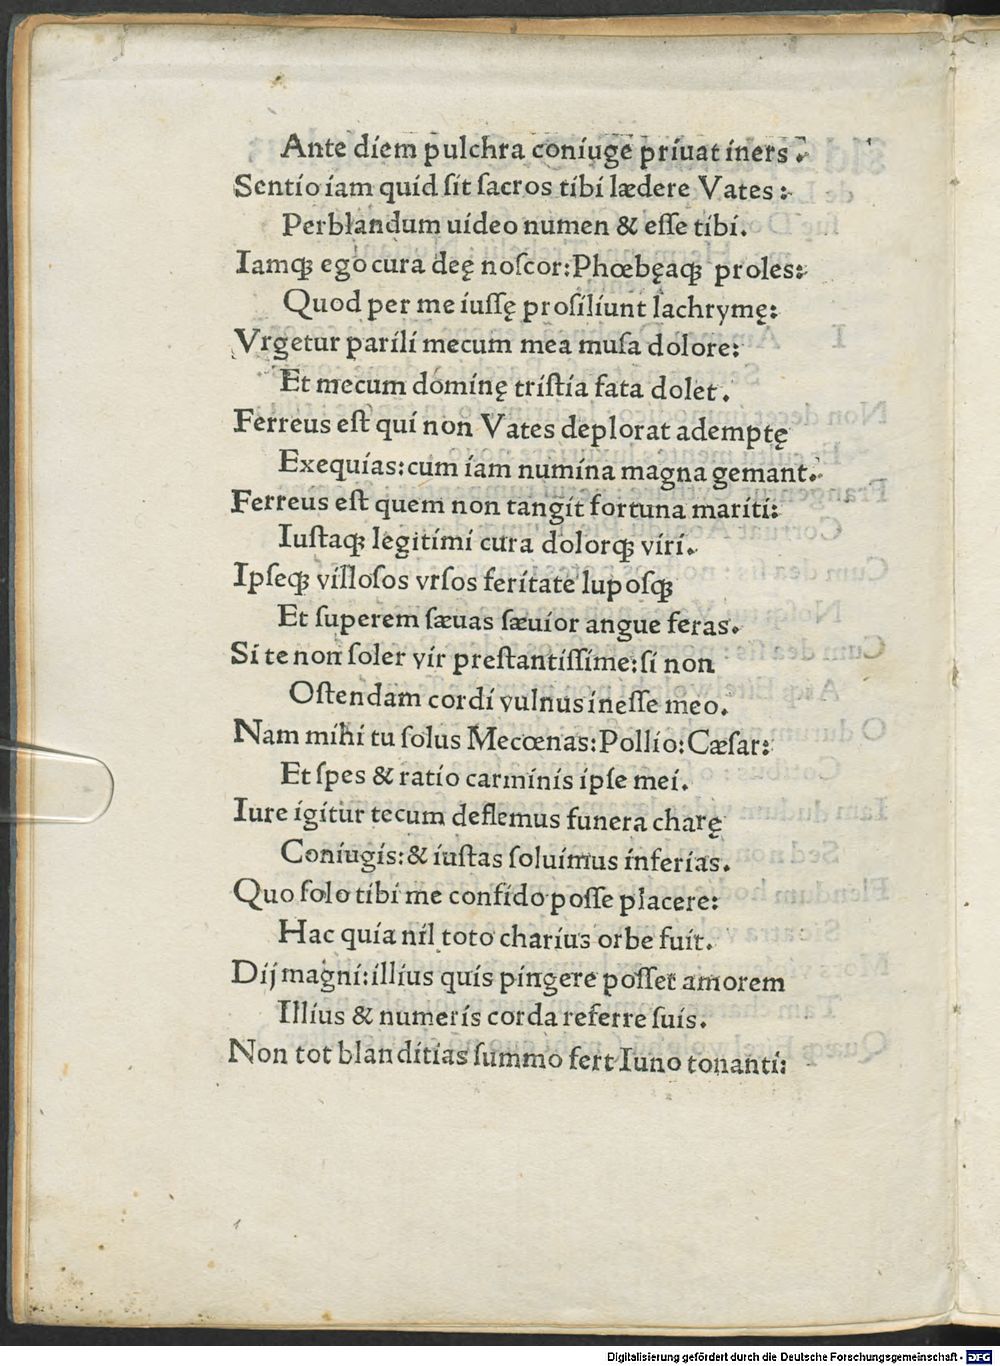 Ante diem pulchra coniuge priuat iners.
Sentio iam quid sit sacros tibi lædere Vates:
Perblandum uideo numen & esse tibi.
Iamqꝫ ego cura deę noscor: Phœbęaqꝫ proles:
Quod per me iussę prosiliunt lachrymę:
Vrgetur parili mecum mea musa dolore:
Et mecum dominę tristia fata dolet.
Ferreus est qui non Vates deplorat ademptę
Exequias: cum iam numina magna gemant.
Ferreus est quem non tangit fortuna mariti:
Iustaqꝫ legitimi cura dolorqꝫ viri.
Ipseqꝫ villosos vrsos feritate luposqꝫ
Et superem sæuas sæuior angue feras.
Si te non soler vir prestantissime: si non
Ostendam cordi vulnus inesse meo.
Nam mihi tu solus Mecœnas: Pollio: Cæsar:
Et spes & ratio carminis ipse mei.
Iure igitur tecum deflemus funera charę
Coniugis: & iustas soluimus inferias.
Quo solo tibi me confido posse placere:
Hac quia nil toto charius orbe fuit.
Dij magni: illius quis pingere posset amorem
Illius & numeris corda referre suis.
Non tot blanditias summo fert Iuno tonanti:
Digitalisierung gefördert durch die Deutsche Forschungsgemeinschaft - DFG